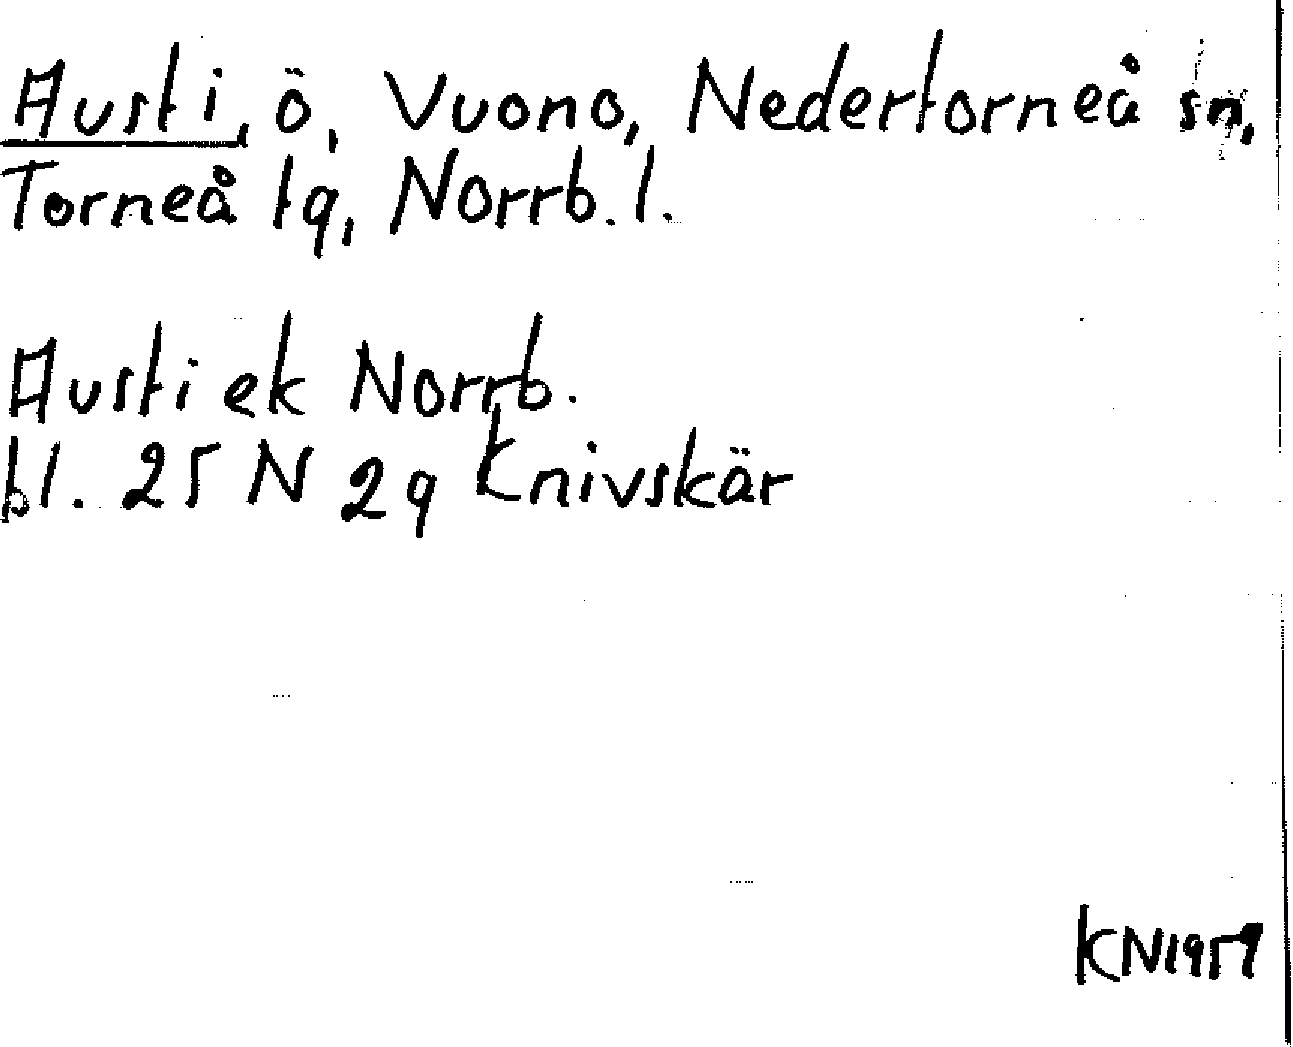 Austi, ö, Vuono, Nedertorneå sn,
Torneå tg, Norrb. l.
Austi ek Norrb.
bl. 25 N 2g Knivskär
KN1959